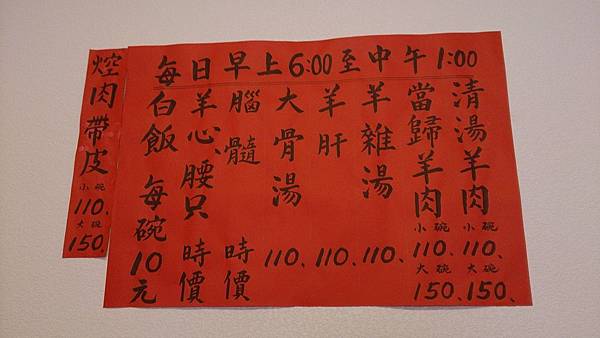 每日早上6:00至中午1:00
清湯羊肉 小碗 110、 大碗 150、
當歸羊肉 小碗 110、 大碗 150、
羊雜湯 110、
羊肝 110、
大骨湯 110、
腦髓 時價
羊心、腰只 時價
白飯 每碗10元
焢肉帶皮 小碗 110、 大碗 150、